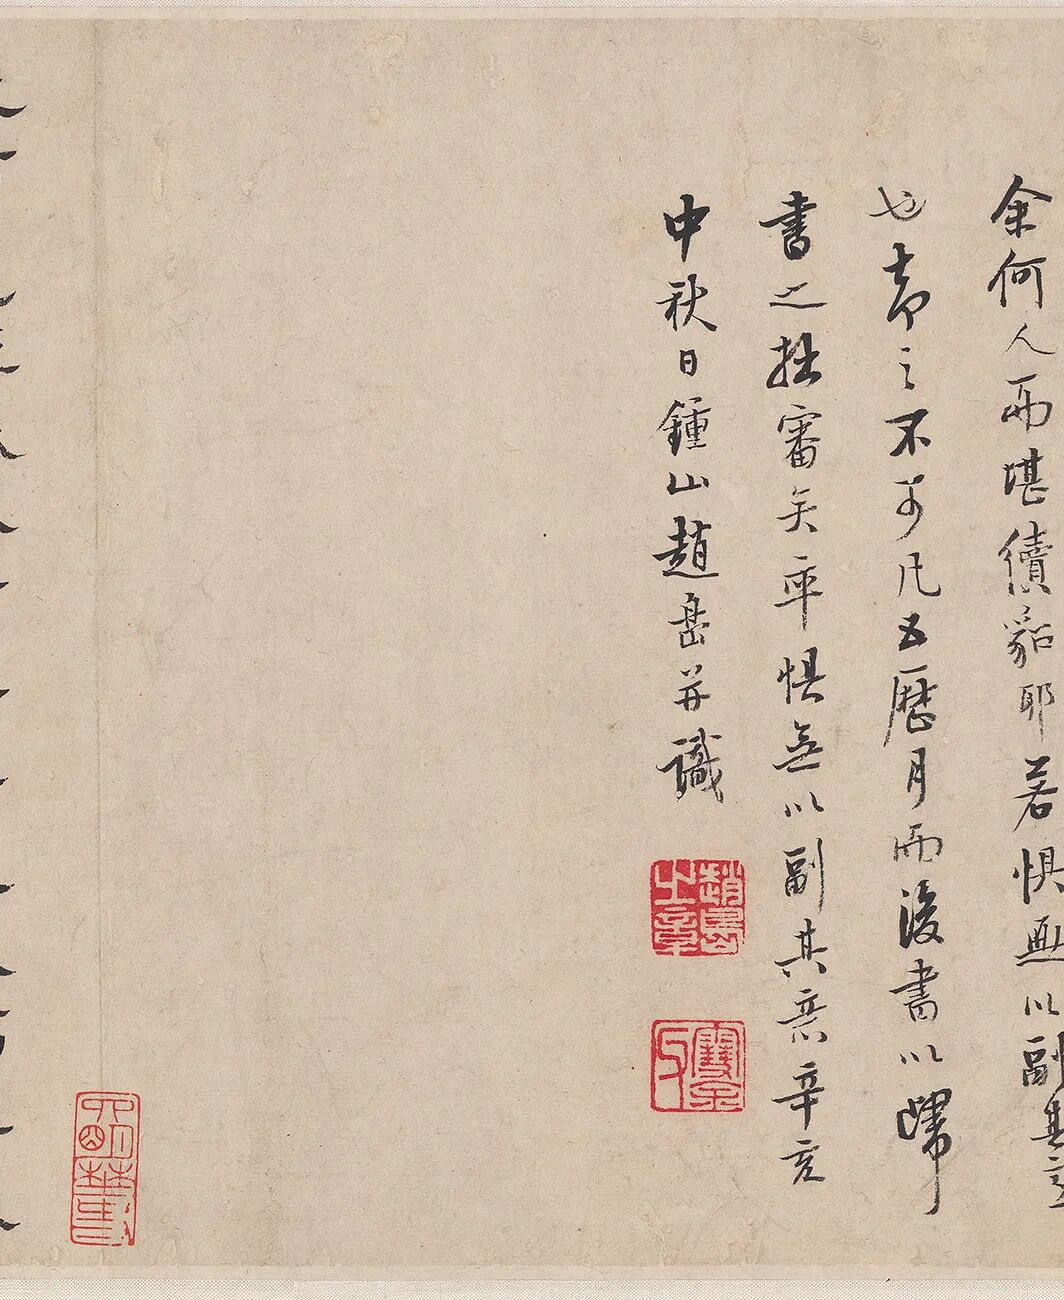 余何人而堪續貂耶若惧無以副其意
也却之不可凡五歷月而後書以歸
書之拙審矣惧無以副其意辛亥
中秋日鍾山趙岳并識
趙岳之章